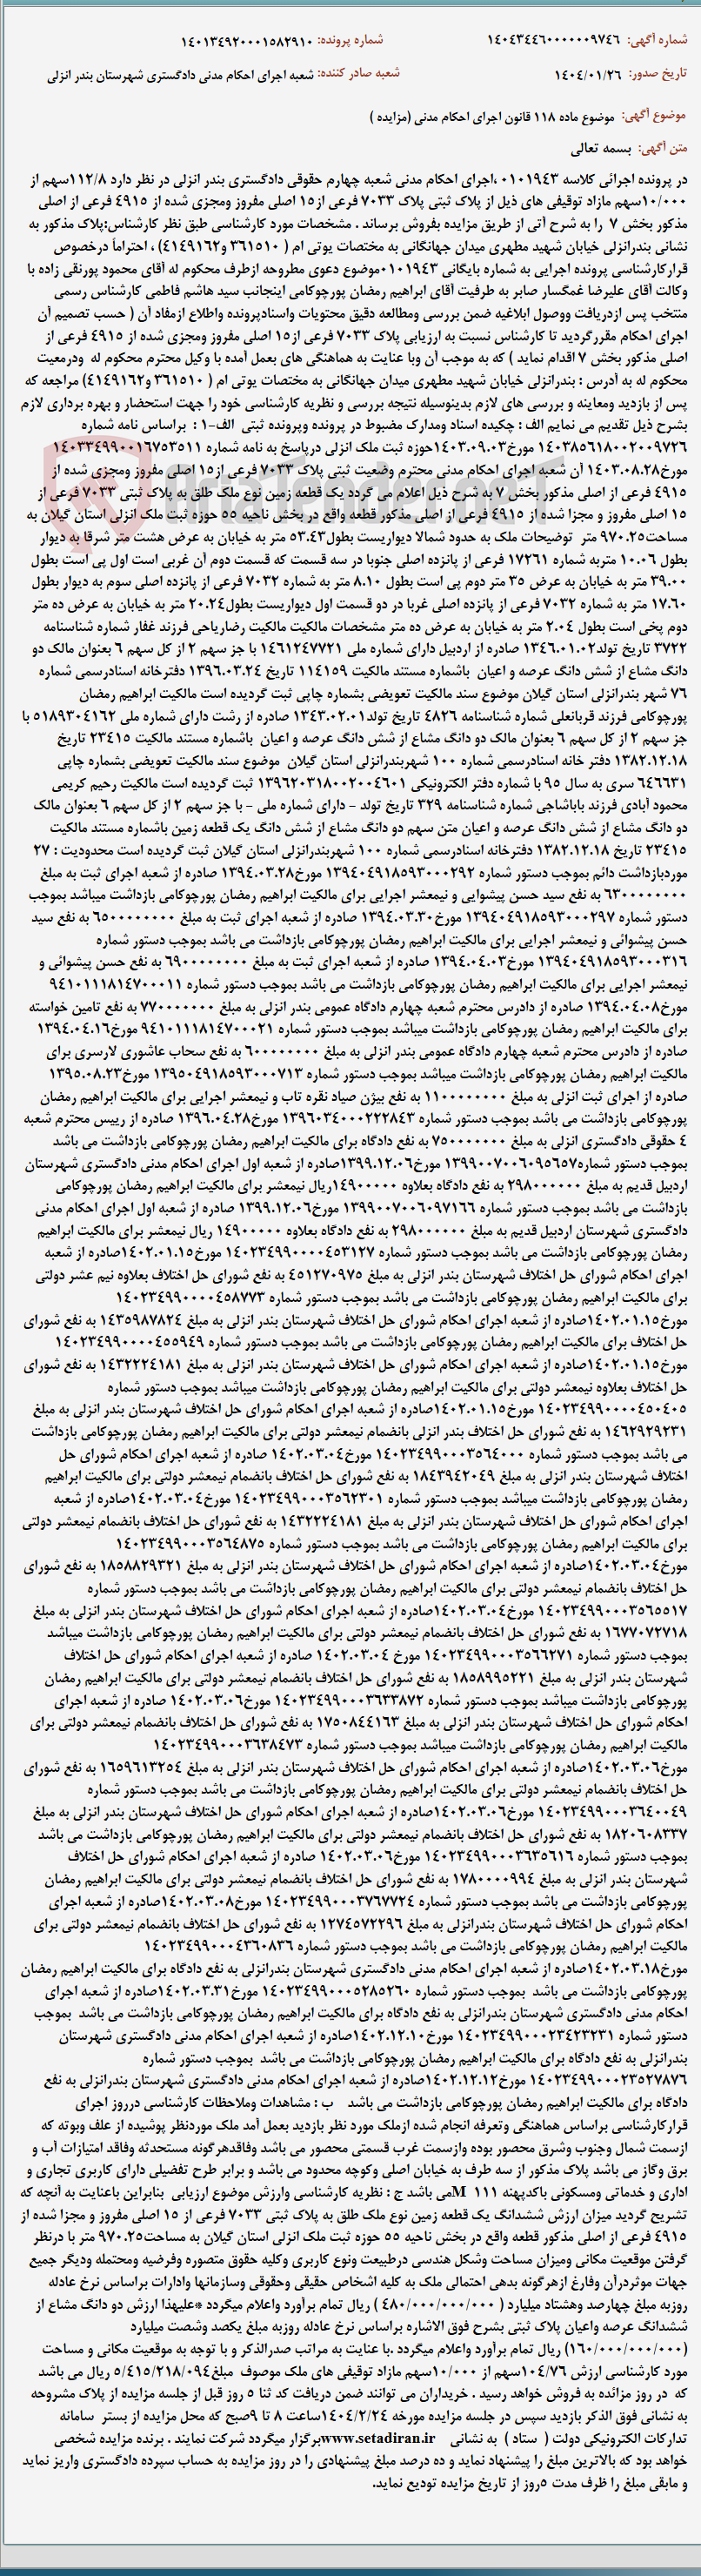 شماره آگهی: ۱۴۰۴۳۴۴۶۰۰۰۰۰۰۹۷۴۶ شماره پرونده: ۱۴۰۱۳۴۹۲۰۰۰۱۵۸۲۹۱۰
تاریخ صدور: ۱۴۰۴/۰۱/۲۶ شعبه صادر کننده: شعبه اجرای احکام مدنی دادگستری شهرستان بندر انزلی
موضوع آگهی: موضوع ماده ۱۱۸ قانون اجرای احکام مدنی (مزایده )
متن آگهی: بسمه تعالی
در پرونده اجرائی کلاسه ۰۱۰۱۹۴۳ ،اجرای احکام مدنی شعبه چهارم حقوقی دادگستری بندر انزلی در نظر دارد ۱۱۲/۸سهم از
۱۰/۰۰۰سهم مازاد توقیفی های ذیل از پلاک ثبتی پلاک ۷۰۳۳ فرعی از۱۵ اصلی مفروز ومجزی شده از ۴۹۱۵ فرعی از اصلی
مذکور بخش ۷ را به شرح آتی از طریق مزایده بفروش برساند . مشخصات مورد کارشناسی طبق نظر کارشناس:پلاک مذکور به
نشانی بندرانزلی خیابان شهید مطهری میدان جهانگانی به مختصات یوتی ام ( ۳۶۱۵۱۰ و۴۱۴۹۱۶۲) ، احتراماً درخصوص
قرارکارشناسی پرونده اجرایی به شماره بایگانی ۰۱۰۱۹۴۳موضوع دعوی مطروحه ازطرف محکوم له آقای محمود پورنقی زاده با
وکالت آقای علیرضا غمگسار صابر به طرفیت آقای ابراهیم رمضان پورچوکامی اینجانب سید هاشم فاطمی کارشناس رسمی
منتخب پس ازدریافت ووصول ابلاغیه ضمن بررسی ومطالعه دقیق محتویات واسنادپرونده واطلاع ازمفاد آن ( حسب تصمیم آن
اجرای احکام مقررگردید تا کارشناس نسبت به ارزیابی پلاک ۷۰۳۳ فرعی از۱۵ اصلی مفروز ومجزی شده از ۴۹۱۵ فرعی از
اصلی مذکور بخش ۷ اقدام نماید ) که به موجب آن وبا عنایت به هماهنگی های بعمل آمده با وکیل محترم محکوم له ودرمعیت
محکوم له به آدرس : بندرانزلی خیابان شهید مطهری میدان جهانگانی به مختصات یوتی ام ( ۳۶۱۵۱۰ و۴۱۴۹۱۶۲) مراجعه که
پس از بازدید ومعاینه و بررسی های لازم بدینوسیله نتیجه بررسی و نظریه کارشناسی خود را جهت استحضار و بهره برداری لازم
بشرح ذیل تقدیم می نمایم الف : چکیده اسناد ومدارک مضبوط در پرونده وپرونده ثبتی الف-۱ : براساس نامه شماره
۱۴۰۳۸۵۶۱۸۰۰۲۰۰۹۷۲۶ مورخ۱۴۰۳.۰۹.۰۳حوزه ثبت ملک انزلی درپاسخ به نامه شماره ۱۴۰۳۳۴۹۹۰۰۱۶۷۵۳۵۱۱
مورخ۱۴۰۳.۰۸.۲۸ آن شعبه اجرای احکام مدنی محترم وضعیت ثبتی پلاک ۷۰۳۳ فرعی از۱۵ اصلی مفروز ومجزی شده از
۴۹۱۵ فرعی از اصلی مذکور بخش ۷ به شرح ذیل اعلام می گردد یک قطعه زمین نوع ملک طلق به پلاک ثبتی ۷۰۳۳ فرعی از
۱۵ اصلی مفروز و مجزا شده از ۴۹۱۵ فرعی از اصلی مذکور قطعه واقع در بخش ناحیه ۵۵ حوزه ثبت ملک انزلی استان گیلان به
مساحت۹۷۰.۲۵ متر توضیحات ملک به حدود شمالا دیواریست بطول۵۳.۴۳ متر به خیابان به عرض هشت متر شرقا به دیوار
بطول ۱۰.۰۶ متربه شماره ۱۷۲۶۱ فرعی از پانزده اصلی جنوبا در سه قسمت که قسمت دوم آن غربی است اول پی است بطول
۳۹.۰۰ متر به خیابان به عرض ۳۵ متر دوم پی است بطول ۸.۱۰ متر به شماره ۷۰۳۲ فرعی از پانزده اصلی سوم به دیوار بطول
۱۷.۶۰ متر به شماره ۷۰۳۲ فرعی از پانزده اصلی غربا در دو قسمت اول دیواریست بطول۲۰.۲۴ متر به خیابان به عرض ده متر
دوم پخی است بطول ۲.۰۴ متر به خیابان به عرض ده متر مشخصات مالکیت مالکیت رضاریاحی فرزند غفار شماره شناسنامه
۳۷۲۲ تاریخ تولد۱۳۴۶.۰۱.۰۲ صادره از اردبیل دارای شماره ملی ۱۴۶۱۲۴۷۷۲۱ با جز سهم ۲ از کل سهم ۶ بعنوان مالک دو
دانگ مشاع از شش دانگ عرصه و اعیان باشماره مستند مالکیت ۱۱۴۱۵۹ تاریخ ۱۳۹۶.۰۳.۲۴ دفترخانه اسنادرسمی شماره
۷۶ شهر بندرانزلی استان گیلان موضوع سند مالکیت تعویضی بشماره چاپی ثبت گردیده است مالکیت ابراهیم رمضان
پورچوکامی فرزند قربانعلی شماره شناسنامه ۴۸۲۶ تاریخ تولد۱۳۴۳.۰۲.۰۱ صادره از رشت دارای شماره ملی ۵۱۸۹۳۰۴۱۶۲ با
جز سهم ۲ از کل سهم ۶ بعنوان مالک دو دانگ مشاع از شش دانگ عرصه و اعیان باشماره مستند مالکیت ۲۳۴۱۵ تاریخ
۱۳۸۲.۱۲.۱۸ دفتر خانه اسنادرسمی شماره ۱۰۰ شهربندرانزلی استان گیلان موضوع سند مالکیت تعویضی بشماره چاپی
۶۴۶۶۳۱ سری به سال ۹۵ با شماره دفتر الکترونیکی ۱۳۹۶۲۰۳۱۸۰۰۲۰۰۴۶۰۱ ثبت گردیده است مالکیت رحیم کریمی
محمود آبادی فرزند باباشاجی شماره شناسنامه ۳۲۹ تاریخ تولد - دارای شماره ملی - با جز سهم ۲ از کل سهم ۶ بعنوان مالک
دو دانگ مشاع از شش دانگ عرصه و اعیان متن سهم دو دانگ مشاع از شش دانگ یک قطعه زمین باشماره مستند مالکیت
۲۳۴۱۵ تاریخ ۱۳۸۲.۱۲.۱۸ دفترخانه اسنادرسمی شماره ۱۰۰ شهربندرانزلی استان گیلان ثبت گردیده است محدودیت : ۲۷
موردبازداشت دائم بموجب دستور شماره ۱۳۹۴۰۴۹۱۸۵۹۳۰۰۰۲۹۲ مورخ۱۳۹۴.۰۳.۲۸ صادره از شعبه اجرای ثبت به مبلغ
۶۳۰۰۰۰۰۰۰۰ به نفع سید حسن پیشوایی و نیمعشر اجرایی برای مالکیت ابراهیم رمضان پورچوکامی بازداشت میباشد بموجب
دستور شماره ۱۳۹۴۰۴۹۱۸۵۹۳۰۰۰۲۹۷ مورخ۱۳۹۴.۰۳.۳۰ صادره از شعبه اجرای ثبت به مبلغ ۶۵۰۰۰۰۰۰۰۰ به نفع سید
حسن پیشوائی و نیمعشر اجرایی برای مالکیت ابراهیم رمضان پورچوکامی بازداشت می باشد بموجب دستور شماره
۱۳۹۴۰۴۹۱۸۵۹۳۰۰۰۳۱۶ مورخ۱۳۹۴.۰۴.۰۳ صادره از شعبه اجرای ثبت به مبلغ ۶۹۰۰۰۰۰۰۰۰ به نفع حسن پیشوائی و
نیمعشر اجرایی برای مالکیت ابراهیم رمضان پورچوکامی بازداشت می باشد بموجب دستور شماره ۹۴۱۰۱۱۱۸۱۴۷۰۰۰۱۱
مورخ۱۳۹۴.۰۴.۰۸ صادره از دادرس محترم شعبه چهارم دادگاه عمومی بندر انزلی به مبلغ ۷۷۰۰۰۰۰۰۰ به نفع تامین خواسته
برای مالکیت ابراهیم رمضان پورچوکامی بازداشت میباشد بموجب دستور شماره ۹۴۱۰۱۱۱۸۱۴۷۰۰۰۲۱ مورخ۱۳۹۴.۰۴.۱۶
صادره از دادرس محترم شعبه چهارم دادگاه عمومی بندر انزلی به مبلغ ۶۰۰۰۰۰۰۰۰ به نفع سحاب عاشوری لارسری برای
مالکیت ابراهیم رمضان پورچوکامی بازداشت میباشد بموجب دستور شماره ۱۳۹۵۰۴۹۱۸۵۹۳۰۰۰۷۱۳ مورخ۱۳۹۵.۰۸.۲۳
صادره از اجرای ثبت انزلی به مبلغ ۱۱۰۰۰۰۰۰۰۰ به نفع بیژن صیاد نقره تاب و نیمعشر اجرایی برای مالکیت ابراهیم رمضان
پورچوکامی بازداشت می باشد بموجب دستور شماره ۱۳۹۶۰۳۴۰۰۰۲۲۲۸۴۳ مورخ۱۳۹۶.۰۴.۲۸ صادره از رییس محترم شعبه
۴ حقوقی دادگستری انزلی به مبلغ ۷۵۰۰۰۰۰۰۰ به نفع دادگاه برای مالکیت ابراهیم رمضان پورچوکامی بازداشت می باشد
بموجب دستور شماره۱۳۹۹۰۰۷۰۰۶۰۹۵۶۵۷ مورخ۱۳۹۹.۱۲.۰۶صادره از شعبه اول اجرای احکام مدنی دادگستری شهرستان
اردبیل قدیم به مبلغ ۲۹۸۰۰۰۰۰۰ به نفع دادگاه بعلاوه ۱۴۹۰۰۰۰۰ریال نیمعشر برای مالکیت ابراهیم رمضان پورچوکامی
بازداشت می باشد بموجب دستور شماره ۱۳۹۹۰۰۷۰۰۶۰۹۷۱۶۶ مورخ۱۳۹۹.۱۲.۰۶ صادره از شعبه اول اجرای احکام مدنی
دادگستری شهرستان اردبیل قدیم به مبلغ ۲۹۸۰۰۰۰۰۰ به نفع دادگاه بعلاوه ۱۴۹۰۰۰۰۰ ریال نیمعشر برای مالکیت ابراهیم
رمضان پورچوکامی بازداشت می باشد بموجب دستور شماره ۱۴۰۲۳۴۹۹۰۰۰۰۴۵۳۱۲۷ مورخ۱۴۰۲.۰۱.۱۵صادره از شعبه
اجرای احکام شورای حل اختلاف شهرستان بندر انزلی به مبلغ ۴۵۱۲۷۰۹۷۵ به نفع شورای حل اختلاف بعلاوه نیم عشر دولتی
برای مالکیت ابراهیم رمضان پورچوکامی بازداشت می باشد بموجب دستور شماره ۱۴۰۲۳۴۹۹۰۰۰۰۴۵۸۷۷۳
مورخ۱۴۰۲.۰۱.۱۵صادره از شعبه اجرای احکام شورای حل اختلاف شهرستان بندر انزلی به مبلغ ۱۴۳۵۹۸۷۸۲۴ به نفع شورای
حل اختلاف برای مالکیت ابراهیم رمضان پورچوکامی بازداشت می باشد بموجب دستور شماره ۱۴۰۲۳۴۹۹۰۰۰۰۴۵۵۹۴۹
مورخ۱۴۰۲.۰۱.۱۵صادره از شعبه اجرای احکام شورای حل اختلاف شهرستان بندر انزلی به مبلغ ۱۴۳۲۲۲۴۱۸۱ به نفع شورای
حل اختلاف بعلاوه نیمعشر دولتی برای مالکیت ابراهیم رمضان پورچوکامی بازداشت میباشد بموجب دستور شماره
۱۴۰۲۳۴۹۹۰۰۰۰۴۵۰۴۰۵ مورخ۱۴۰۲.۰۱.۱۵صادره از شعبه اجرای احکام شورای حل اختلاف شهرستان بندر انزلی به مبلغ
۱۴۶۲۹۲۹۲۳۱ به نفع شورای حل اختلاف بندر انزلی بانضمام نیمعشر دولتی برای مالکیت ابراهیم رمضان پورچوکامی بازداشت
می باشد بموجب دستور شماره ۱۴۰۲۳۴۹۹۰۰۰۳۵۶۴۰۰۰ مورخ۱۴۰۲.۰۳.۰۴ صادره از شعبه اجرای احکام شورای حل
اختلاف شهرستان بندر انزلی به مبلغ ۱۸۴۳۹۴۲۰۴۹ به نفع شورای حل اختلاف بانضمام نیمعشر دولتی برای مالکیت ابراهیم
رمضان پورچوکامی بازداشت میباشد بموجب دستور شماره ۱۴۰۲۳۴۹۹۰۰۰۳۵۶۲۳۰۱ مورخ۱۴۰۲.۰۳.۰۴صادره از شعبه
اجرای احکام شورای حل اختلاف شهرستان بندر انزلی به مبلغ ۱۴۳۲۲۲۴۱۸۱ به نفع شورای حل اختلاف بانضمام نیمعشر دولتی
برای مالکیت ابراهیم رمضان پورچوکامی بازداشت می باشد بموجب دستور شماره ۱۴۰۲۳۴۹۹۰۰۰۳۵۶۴۸۷۵
مورخ۱۴۰۲.۰۳.۰۴صادره از شعبه اجرای احکام شورای حل اختلاف شهرستان بندر انزلی به مبلغ ۱۸۵۸۸۲۹۳۲۱ به نفع شورای
حل اختلاف بانضمام نیمعشر دولتی برای مالکیت ابراهیم رمضان پورچوکامی بازداشت می باشد بموجب دستور شماره
۱۴۰۲۳۴۹۹۰۰۰۳۵۶۵۵۱۷ مورخ۱۴۰۲.۰۳.۰۴صادره از شعبه اجرای احکام شورای حل اختلاف شهرستان بندر انزلی به مبلغ
۱۶۷۷۰۷۲۷۱۸ به نفع شورای حل اختلاف بانضمام نیمعشر دولتی برای مالکیت ابراهیم رمضان پورچوکامی بازداشت میباشد
بموجب دستور شماره ۱۴۰۲۳۴۹۹۰۰۰۳۵۶۶۲۷۱ مورخ ۱۴۰۲.۰۳.۰۴ صادره از شعبه اجرای احکام شورای حل اختلاف
شهرستان بندر انزلی به مبلغ ۱۸۵۸۹۹۵۲۲۱ به نفع شورای حل اختلاف بانضمام نیمعشر دولتی برای مالکیت ابراهیم رمضان
پورچوکامی بازداشت میباشد بموجب دستور شماره ۱۴۰۲۳۴۹۹۰۰۰۳۶۳۳۸۷۲ مورخ۱۴۰۲.۰۳.۰۶ صادره از شعبه اجرای
احکام شورای حل اختلاف شهرستان بندر انزلی به مبلغ ۱۷۵۰۸۴۴۱۶۳ به نفع شورای حل اختلاف بانضمام نیمعشر دولتی برای
مالکیت ابراهیم رمضان پورچوکامی بازداشت میباشد بموجب دستور شماره ۱۴۰۲۳۴۹۹۰۰۰۳۶۳۸۴۷۳
مورخ۱۴۰۲.۰۳.۰۶صادره از شعبه اجرای احکام شورای حل اختلاف شهرستان بندر انزلی به مبلغ ۱۶۵۹۶۱۳۲۵۴ به نفع شورای
حل اختلاف بانضمام نیمعشر دولتی برای مالکیت ابراهیم رمضان پورچوکامی بازداشت می باشد بموجب دستور شماره
۱۴۰۲۳۴۹۹۰۰۰۳۶۴۰۰۴۹ مورخ۱۴۰۲.۰۳.۰۶صادره از شعبه اجرای احکام شورای حل اختلاف شهرستان بندر انزلی به مبلغ
۱۸۲۰۶۰۸۳۳۷ به نفع شورای حل اختلاف بانضمام نیمعشر دولتی برای مالکیت ابراهیم رمضان پورچوکامی بازداشت می باشد
بموجب دستور شماره ۱۴۰۲۳۴۹۹۰۰۰۳۶۳۵۶۱۶ مورخ۱۴۰۲.۰۳.۰۶ صادره از شعبه اجرای احکام شورای حل اختلاف
شهرستان بندر انزلی به مبلغ ۱۷۸۰۰۰۰۹۹۴ به نفع شورای حل اختلاف بانضمام نیمعشر دولتی برای مالکیت ابراهیم رمضان
پورچوکامی بازداشت می باشد بموجب دستور شماره ۱۴۰۲۳۴۹۹۰۰۰۳۷۶۷۷۲۴ مورخ۱۴۰۲.۰۳.۰۸صادره از شعبه اجرای
احکام شورای حل اختلاف شهرستان بندرانزلی به مبلغ ۱۲۷۴۵۷۲۲۹۶ به نفع شورای حل اختلاف بانضمام نیمعشر دولتی برای
مالکیت ابراهیم رمضان پورچوکامی بازداشت می باشد بموجب دستور شماره ۱۴۰۲۳۴۹۹۰۰۰۴۳۶۰۸۳۶
مورخ۱۴۰۲.۰۳.۱۸صادره از شعبه اجرای احکام مدنی دادگستری شهرستان بندرانزلی به نفع دادگاه برای مالکیت ابراهیم رمضان
پورچوکامی بازداشت می باشد بموجب دستور شماره ۱۴۰۲۳۴۹۹۰۰۰۵۲۸۵۲۶۰ مورخ۱۴۰۲.۰۳.۳۱صادره از شعبه اجرای
احکام مدنی دادگستری شهرستان بندرانزلی به نفع دادگاه برای مالکیت ابراهیم رمضان پورچوکامی بازداشت می باشد بموجب
دستور شماره ۱۴۰۲۳۴۹۹۰۰۰۲۳۴۲۳۲۳۱ مورخ۱۴۰۲.۱۲.۱۰صادره از شعبه اجرای احکام مدنی دادگستری شهرستان
بندرانزلی به نفع دادگاه برای مالکیت ابراهیم رمضان پورچوکامی بازداشت می باشد بموجب دستور شماره
۱۴۰۲۳۴۹۹۰۰۰۲۳۵۲۷۸۷۶ مورخ۱۴۰۲.۱۲.۱۲صادره از شعبه اجرای احکام مدنی دادگستری شهرستان بندرانزلی به نفع
دادگاه برای مالکیت ابراهیم رمضان پورچوکامی بازداشت می باشد ب : مشاهدات وملاحظات کارشناسی درروز اجرای
قرارکارشناسی براساس هماهنگی وتعرفه انجام شده ازملک مورد نظر بازدید بعمل آمد ملک موردنظر پوشیده از علف وبوته که
ازسمت شمال وجنوب وشرق محصور بوده وازسمت غرب قسمتی محصور می باشد وفاقدهرگونه مستحدثه وفاقد امتیازات آب و
برق وگاز می باشد پلاک مذکور از سه طرف به خیابان اصلی وکوچه محدود می باشد و برابر طرح تفضیلی دارای کاربری تجاری و
اداری و خدماتی ومسکونی باکدپهنه M ۱۱۱می باشد ج : نظریه کارشناسی وارزش موضوع ارزیابی بنابراین باعنایت به آنچه که
تشریح گردید میزان ارزش ششدانگ یک قطعه زمین نوع ملک طلق به پلاک ثبتی ۷۰۳۳ فرعی از ۱۵ اصلی مفروز و مجزا شده از
۴۹۱۵ فرعی از اصلی مذکور قطعه واقع در بخش ناحیه ۵۵ حوزه ثبت ملک انزلی استان گیلان به مساحت۹۷۰.۲۵ متر با درنظر
گرفتن موقعیت مکانی ومیزان مساحت وشکل هندسی درطبیعت ونوع کاربری وکلیه حقوق متصوره وفرضیه ومحتمله ودیگر جمیع
جهات موثردرآن وفارغ ازهرگونه بدهی احتمالی ملک به کلیه اشخاص حقیقی وحقوقی وسازمانها وادارات براساس نرخ عادله
روزبه مبلغ چهارصد وهشتاد میلیارد ( ۴۸۰/۰۰۰/۰۰۰/۰۰۰ ) ریال تمام برآورد واعلام میگردد *علیهذا ارزش دو دانگ مشاع از
ششدانگ عرصه واعیان پلاک ثبتی بشرح فوق الاشاره براساس نرخ عادله روزبه مبلغ یکصد وشصت میلیارد
(۱۶۰/۰۰۰/۰۰۰/۰۰۰) ریال تمام برآورد واعلام میگردد .با عنایت به مراتب صدرالذکر و با توجه به موقعیت مکانی و مساحت
مورد کارشناسی ارزش ۱۰۴/۷۶سهم از ۱۰/۰۰۰سهم مازاد توقیفی های ملک موصوف مبلغ۵/۴۱۵/۲۱۸/۰۹۴ ریال می باشد
که در روز مزائده به فروش خواهد رسید . خریداران می توانند ضمن دریافت کد ثنا ۵ روز قبل از جلسه مزایده از پلاک مشروحه
به نشانی فوق الذکر بازدید سپس در جلسه مزایده مورخه ۱۴۰۴/۲/۲۴ساعت ۸ تا ۹صبح که محل مزایده از بستر سامانه
تدارکات الکترونیکی دولت ( ستاد ) به نشانی www.setadiran.irبرگزار میگردد شرکت نمایند . برنده مزایده شخصی
خواهد بود که بالاترین مبلغ را پیشنهاد نماید و ده درصد مبلغ پیشنهادی را در روز مزایده به حساب سپرده دادگستری واریز نماید
و مابقی مبلغ را ظرف مدت ۵روز از تاریخ مزایده تودیع نماید.
AriaTender.neT